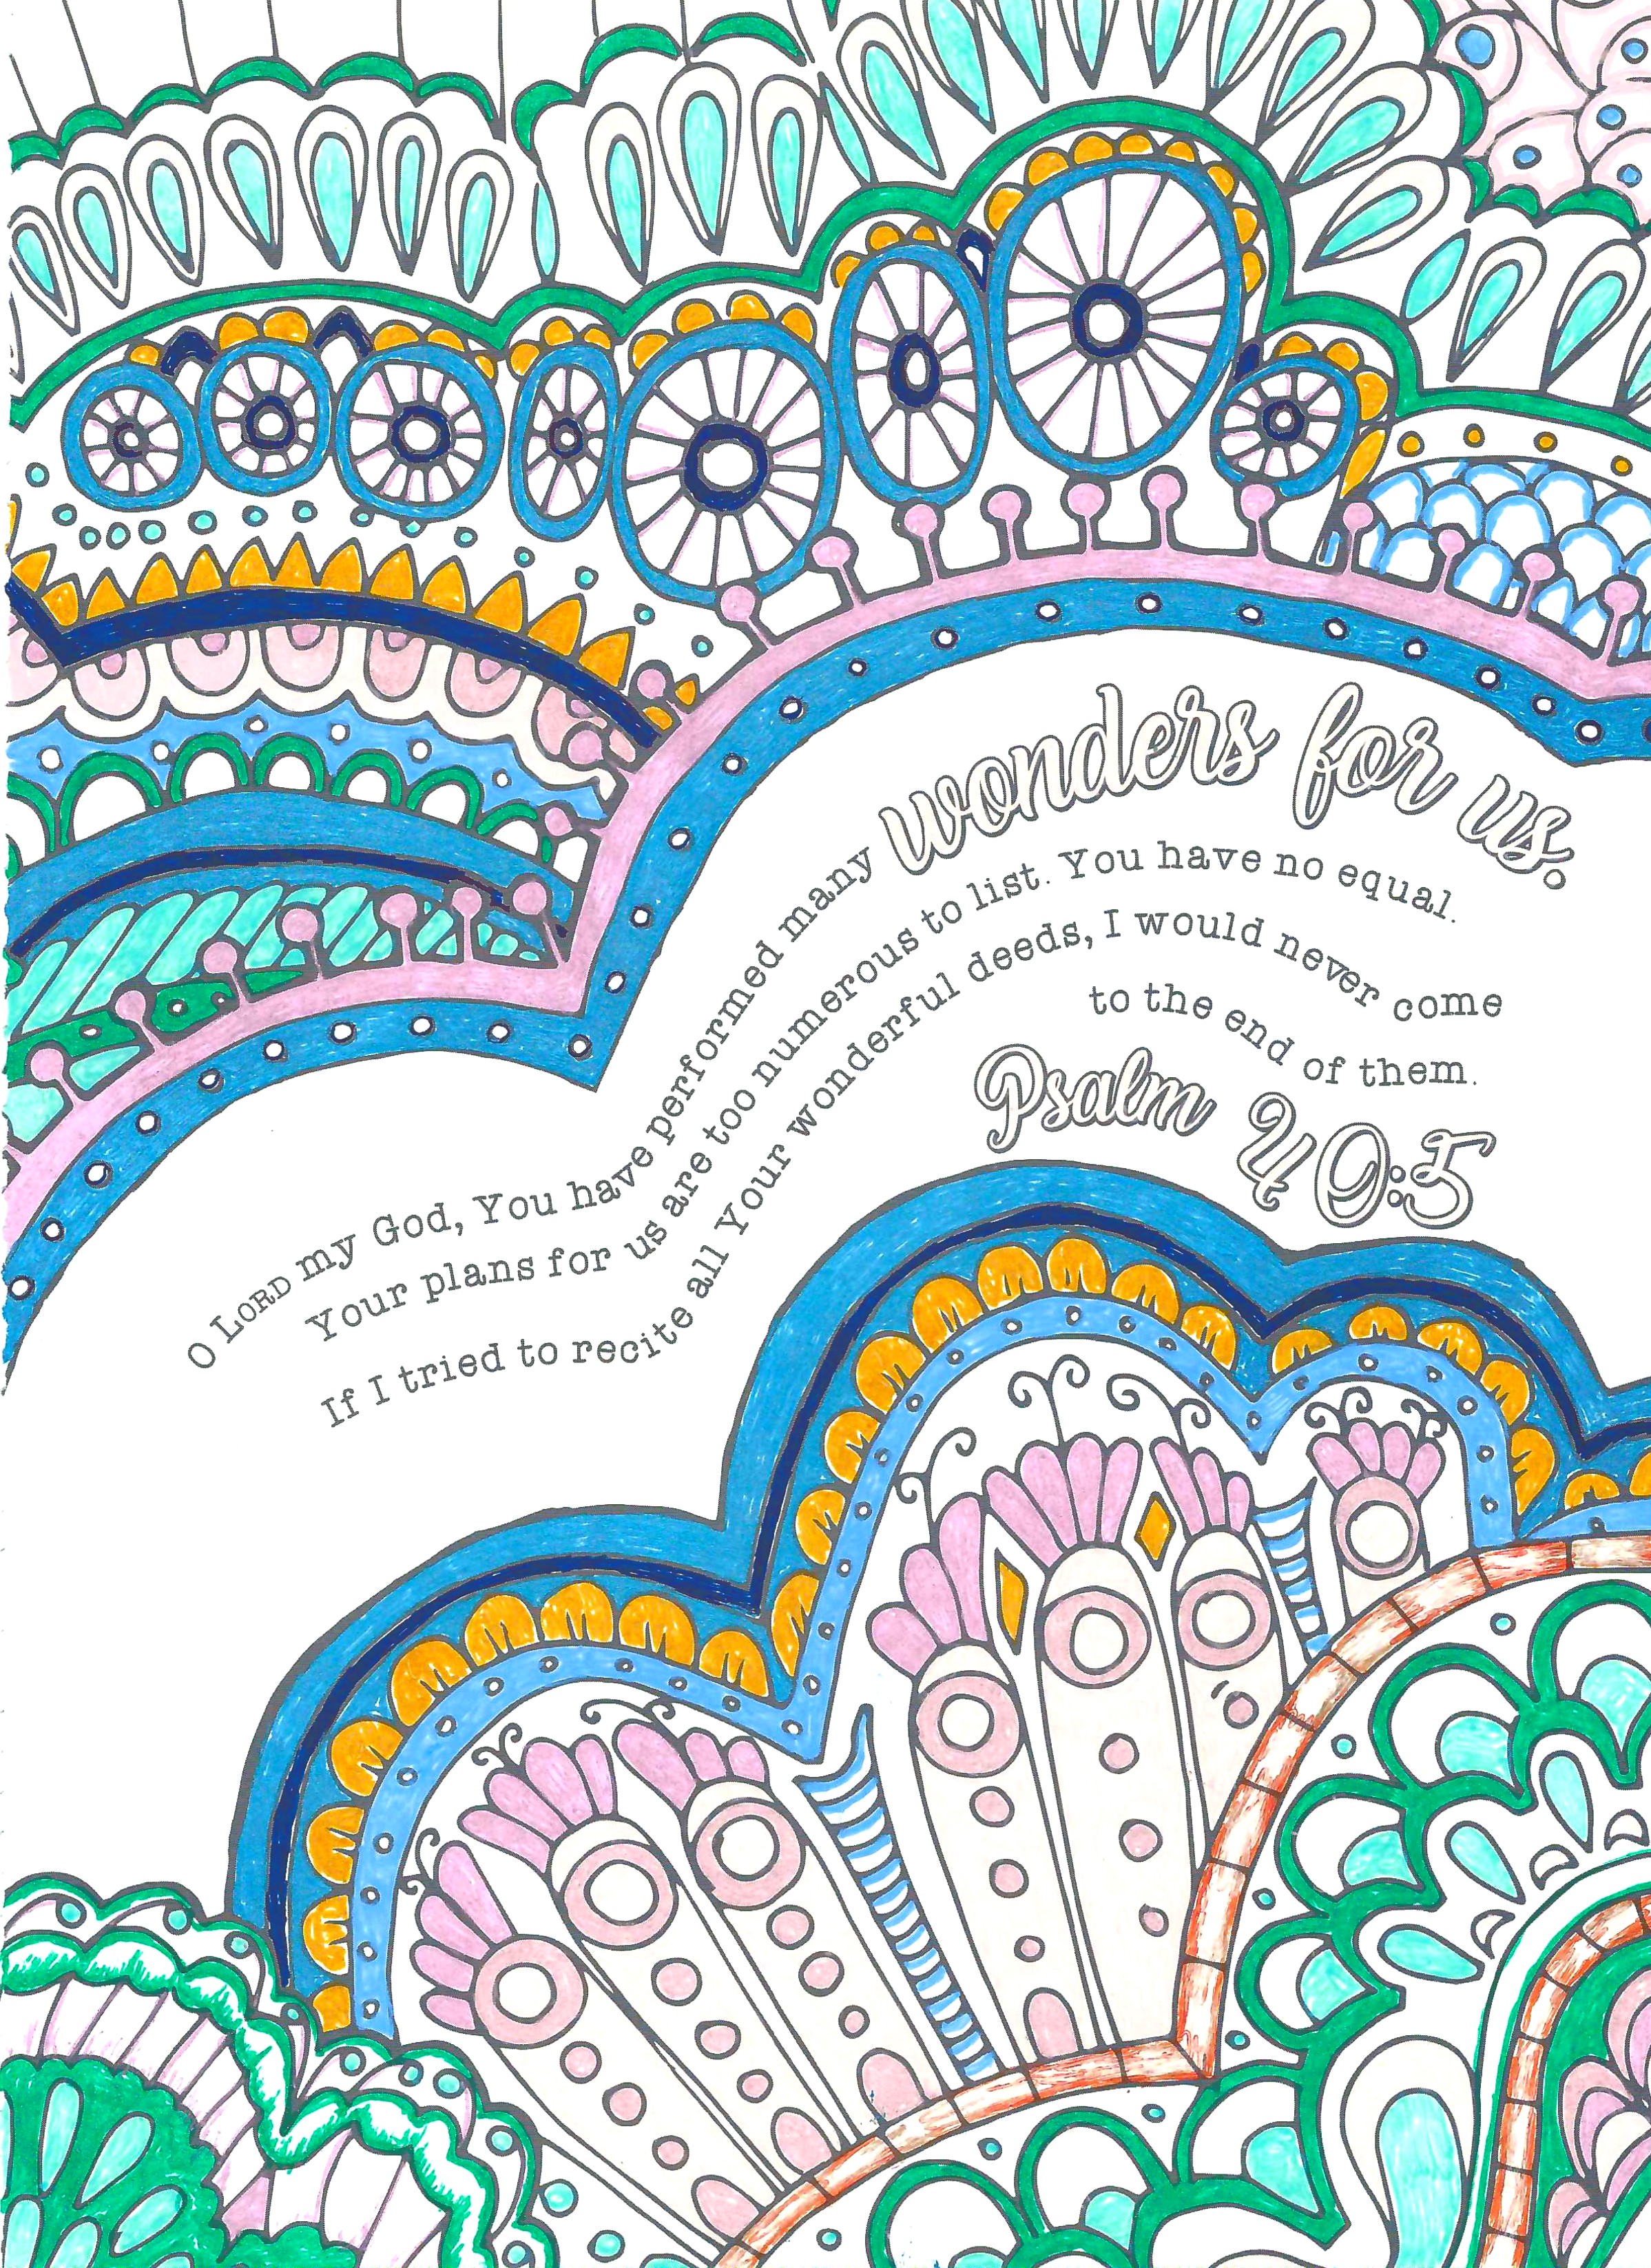 O LORD my God, You have performed many wonders for us.
Your plans for us are too numerous to list. You have no equal.
If I tried to recite all Your wonderful deeds, I would never come
to the end of them.
Psalm 40:5